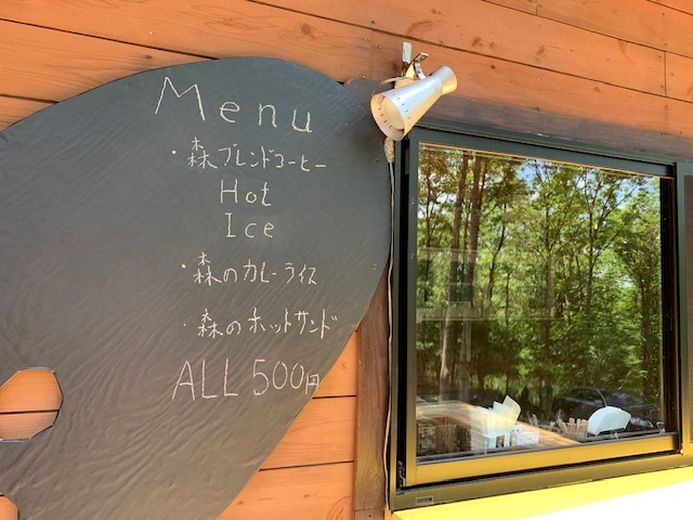 Menu
・森ブレンドコーヒー
Hot
Ice
・森のカレーライス
・森のホットサンド
ALL 500円